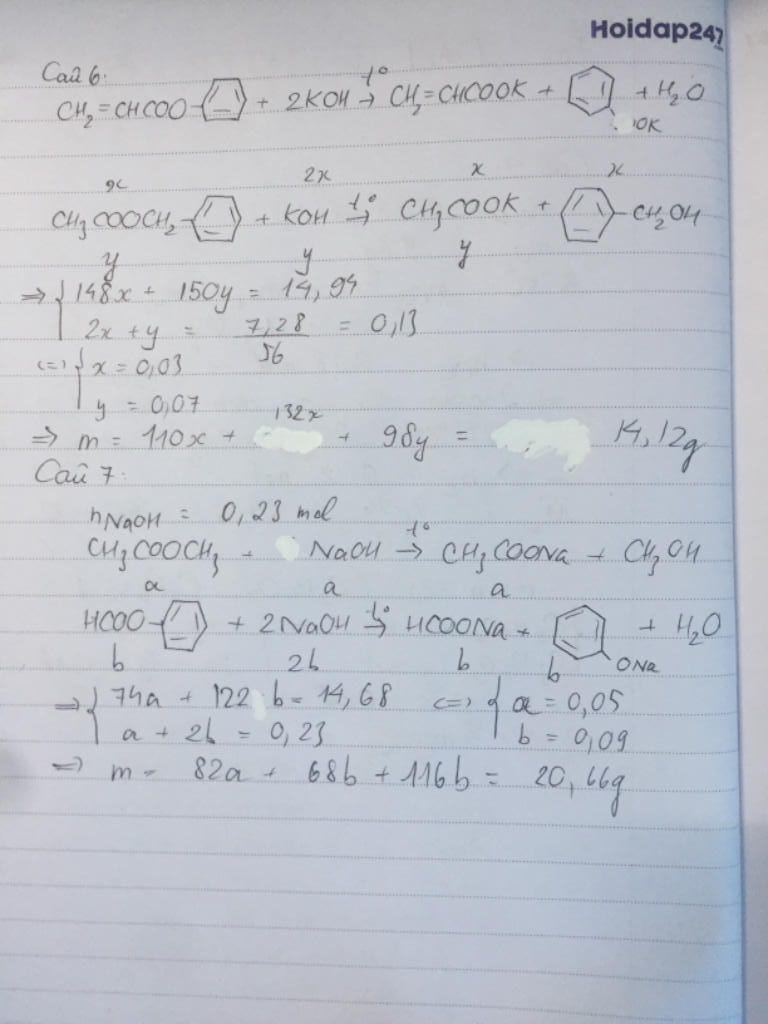 Hoidap247
Câu 6:
CH2=CHCOO- + 2KOH →t° CH2=CHCOOK + + H2O
OK
x 2x x x
CH3COOCH2- + KOH →t° CH3COOK + -CH2OH
y y y
=> { 148x + 150y = 14,94
2x + y = 7,28/56 = 0,13
<=> { x = 0,03
y = 0,07
=> m = 110x + 132x + 98y = 14,12g
Câu 7:
nNaOH = 0,23 mol
CH3COOCH3 + NaOH →t° CH3COONa + CH3OH
a a a
HCOO- + 2NaOH →t° HCOONa + + H2O
b 2b b b ONa
=> { 74a + 122 b = 14,68 <=> { a = 0,05
a + 2b = 0,23 b = 0,09
=> m = 82a + 68b + 116b = 20,66g